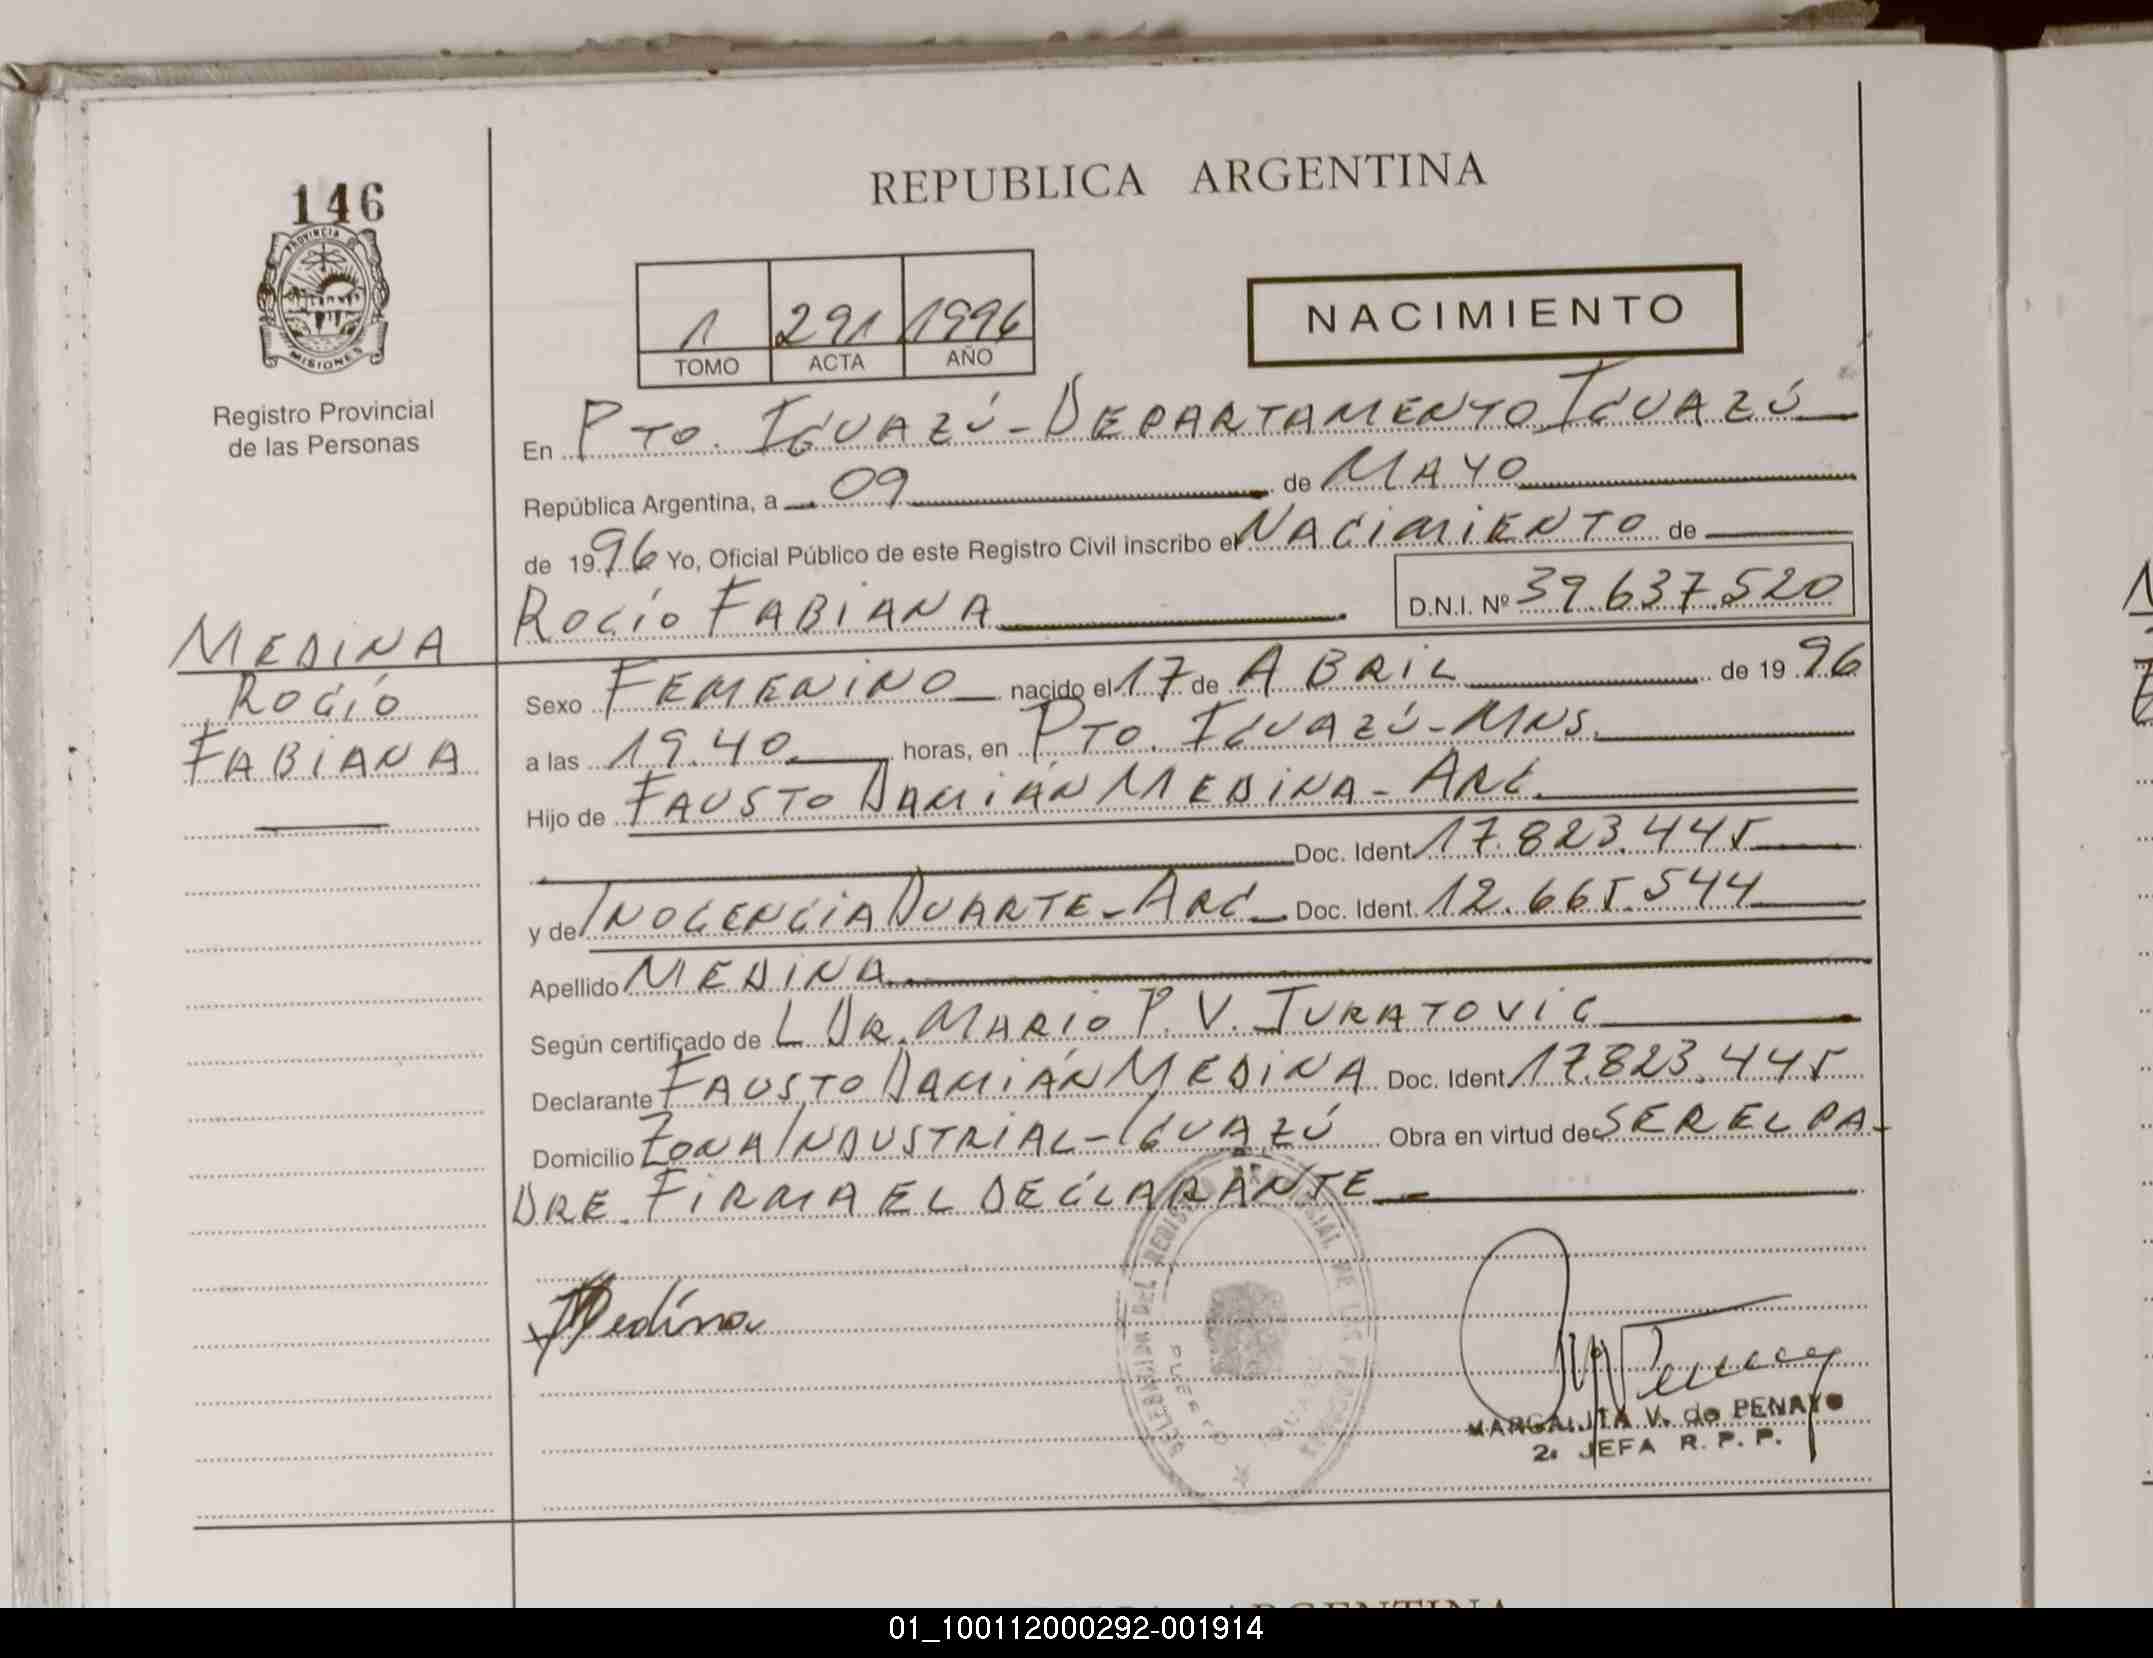 146
PROVINCIA
MISIONES
Registro Provincial
de las Personas
REPUBLICA ARGENTINA
1 291 1996
TOMO ACTA AÑO
NACIMIENTO
En PTO. IGUAZÚ - DEPARTAMENTO IGUAZÚ
República Argentina, a 09 de MAYO
de 1996 Yo, Oficial Público de este Registro Civil inscribo el NACIMIENTO de
ROCÍO FABIANA D.N.I. Nº 39.637.520
MEDINA
ROCÍO
FABIANA
Sexo FEMENINO nacido el 17 de ABRIL de 1996
a las 19.40 horas, en PTO. IGUAZÚ - MNS.
Hijo de FAUSTO DAMIÁN MEDINA - ARG.
Doc. Ident. 17.823.445
y de INOCENCIA DUARTE - ARG Doc. Ident. 12.665.544
Apellido MEDINA
Según certificado de L DR. MARIO P. V. JURATOVIC
Declarante FAUSTO DAMIÁN MEDINA Doc. Ident. 17.823.445
Domicilio ZONA INDUSTRIAL - IGUAZÚ Obra en virtud de SER EL PA-
DRE. FIRMA EL DECLARANTE
Medina
MARGARITA V. de PENAYO
2. JEFA R. P. P.
ARGENTINA
01_100112000292-001914